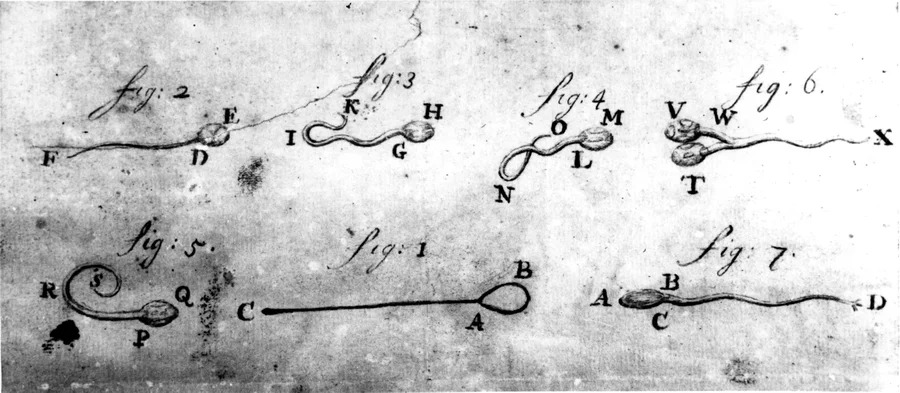 fig: 2 fig: 3 fig: 4 fig: 6.
F D E I K G H N O L M V W T X
fig: 5. fig: 1 fig: 7.
R S Q P C A B A B C D